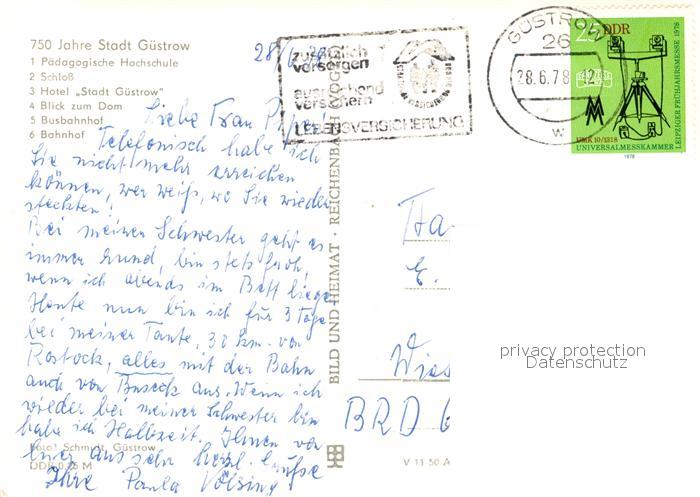 750 Jahre Stadt Güstrow
1 Pädagogische Hochschule
2 Schloß
3 Hotel „Stadt Güstrow"
4 Blick zum Dom
5 Busbahnhof
6 Bahnhof
28/6.
Liebe Frau
Telefonisch habe ich
Sie nicht mehr erreichen
können, wer weiß, wo Sie wieder
stecken!
Bei meiner Schwester geht es
immer rund, bin stets froh,
wenn ich abends im Bett liege
Heute nun bin ich für 3 Tage
bei meiner Tante, 30 km. von
Rostock, alles mit der Bahn
auch von aus. Wenn ich
wieder bei meiner Schwester bin
habe ich Halbzeit. Ihnen
aus sehr herzl. Grüße
Ihre Paula Völsing
Foto: Schmidt, Güstrow
DDR 0,25 M
BILD UND HEIMAT · REICHENBACH (VOGTL)
zusätzlich
versorgen
ausreichend
versichern
LEBENSVERSICHERUNG
GÜSTROW
26
28.6.78
w
25 DDR
UMK 10/1318
UNIVERSALMESSKAMMER
LEIPZIGER FRÜHJAHRSMESSE 1978
1978
Ha
E.
Wies
BRD 6
V 11 50 A
privacy protection
Datenschutz